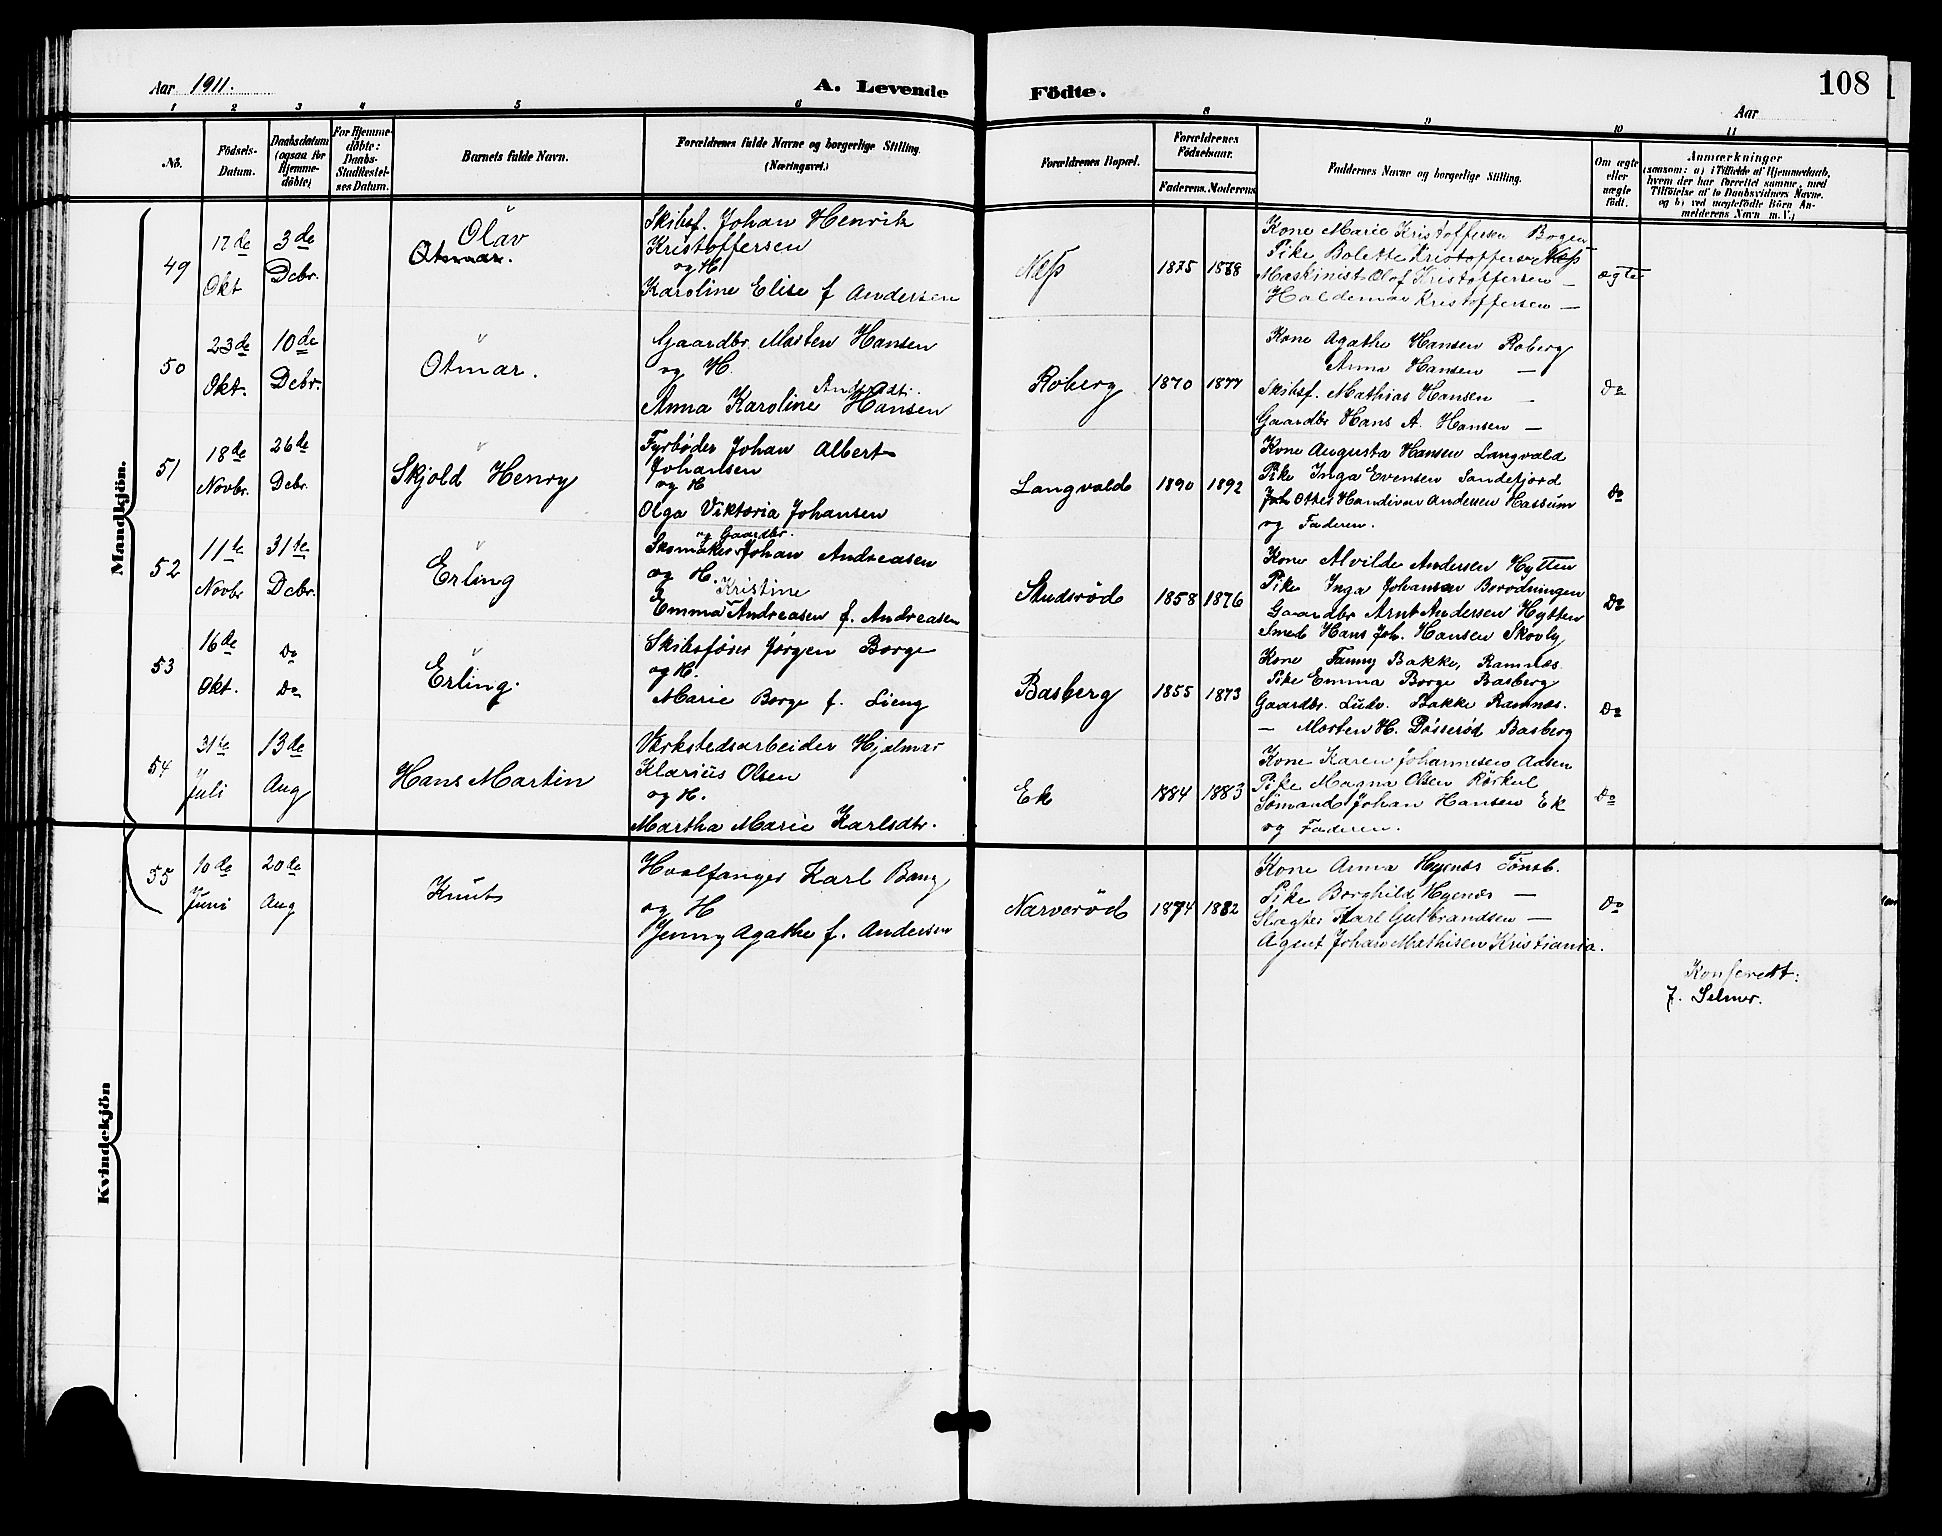 Aar 1911.
A. Levende Födte.
Aar
108
1 2 3 4 5 6 8 9 10 11
No.
Födsels-Datum.
Daabsdatum (ogsaa for Hjemme-döbte)
For Hjemme-döbte: Daabs-Stadfæstel-ses Datum.
Barnets fulde Navn.
Forældrenes fulde Navne og borgerlige Stilling.
(Næringsvei.)
Forældrenes Bopæl.
Forældrenes Födselsaar.
Faderens. Moderens.
Faddernes Navne og borgerlige Stilling.
Om ægte eller uægte födt.
Anmærkninger
(saasom: a) i Tilfælde af Hjemmedaab,
hvem der har forrettet samme, med
Tilföielse af to Daabsvidners Navne.
og b) ved uægtefödte Börn An-
melderens Navn m. V.)
Mandkjön.
49
17de Okt
3de Debr.
Olav
Otmar.
Skibsf. Johan Henrik
Kristoffersen
og H
Karoline Elise f Andersen
Næss
1875 1878
Kone Marie Kristoffersen Bogen
Pike Bolette Kristoffersen Næss
Maskinist Olof Kristoffersen —
Haldemar Kristoffersen —
ægte
50
23de Okt.
10de Debr.
Otmar.
Gaardbr. Morten Hansen
og H.
Anna Karoline Hansen
Roberg
1870 1877
Kone Agathe Hansen Roberg
Anna Hansen —
Skibsf. Mathias Hansen —
Gaardbr Hans A. Hansen —
Do
51
18de Novbr.
26de Debr.
Skjold Henry
Fyrbøder Johan Albert
Johansen
og H
Olga Viktoria Johansen
Langvald
1890 1892
Kone Augusta Hansen Langvald
Pike Inga Evensen Sandefjord
Andersen Hassum
og Faderen.
Do
52
11te Novbr
31te Debr.
Erling
og Gaardbr.
Skomaker Johan Andreasen
og H.
Kristine
Emma Andreasen f. Andreasen
Studsrød
1858 1876
Kone Alvilde Andersen Hytten
Pike Inga Johansen
Gaardbr Arnt Andersen Hytten
Smed Hans Joh. Hansen Skovly
Do
53
16de Okt.
Do Do
Erling.
Skibsfører Jørgen Borge
og H.
Marie Borge f. Lieng
Basberg
1855 1873
Kone Fanny Bakke, Ramnæs.
Pike Emma Borge Basberg
Gaardbr. Ludv. Bakke Ramnæs.
— Morten H. Døsserød Basberg
Do
54
31te Juli
13de Aug
Hans Martin
Værkstedsarbeider Hjalmar
Klarius Olsen
og H.
Martha Marie Karlsdtr.
Ek
1884 1883
Kone Karen Johannesen Aasen
Pike Magna Olsen
Sømand Johan Hansen Ek
og Faderen.
Do
55
10de Juni
20de Aug
Knut
Hvalfanger Karl Bang
og H
Jenny Agathe f. Andersen
Narverød
1874 1882
Kone Anna Hyenæs Tønsb.
Pike Borghild Hyenæs —
Slagter Karl Gulbrandsen —
Agent Johan Mathisen Kristiania.
Do
Konfereret:
J. Selmer.
Kvindekjön